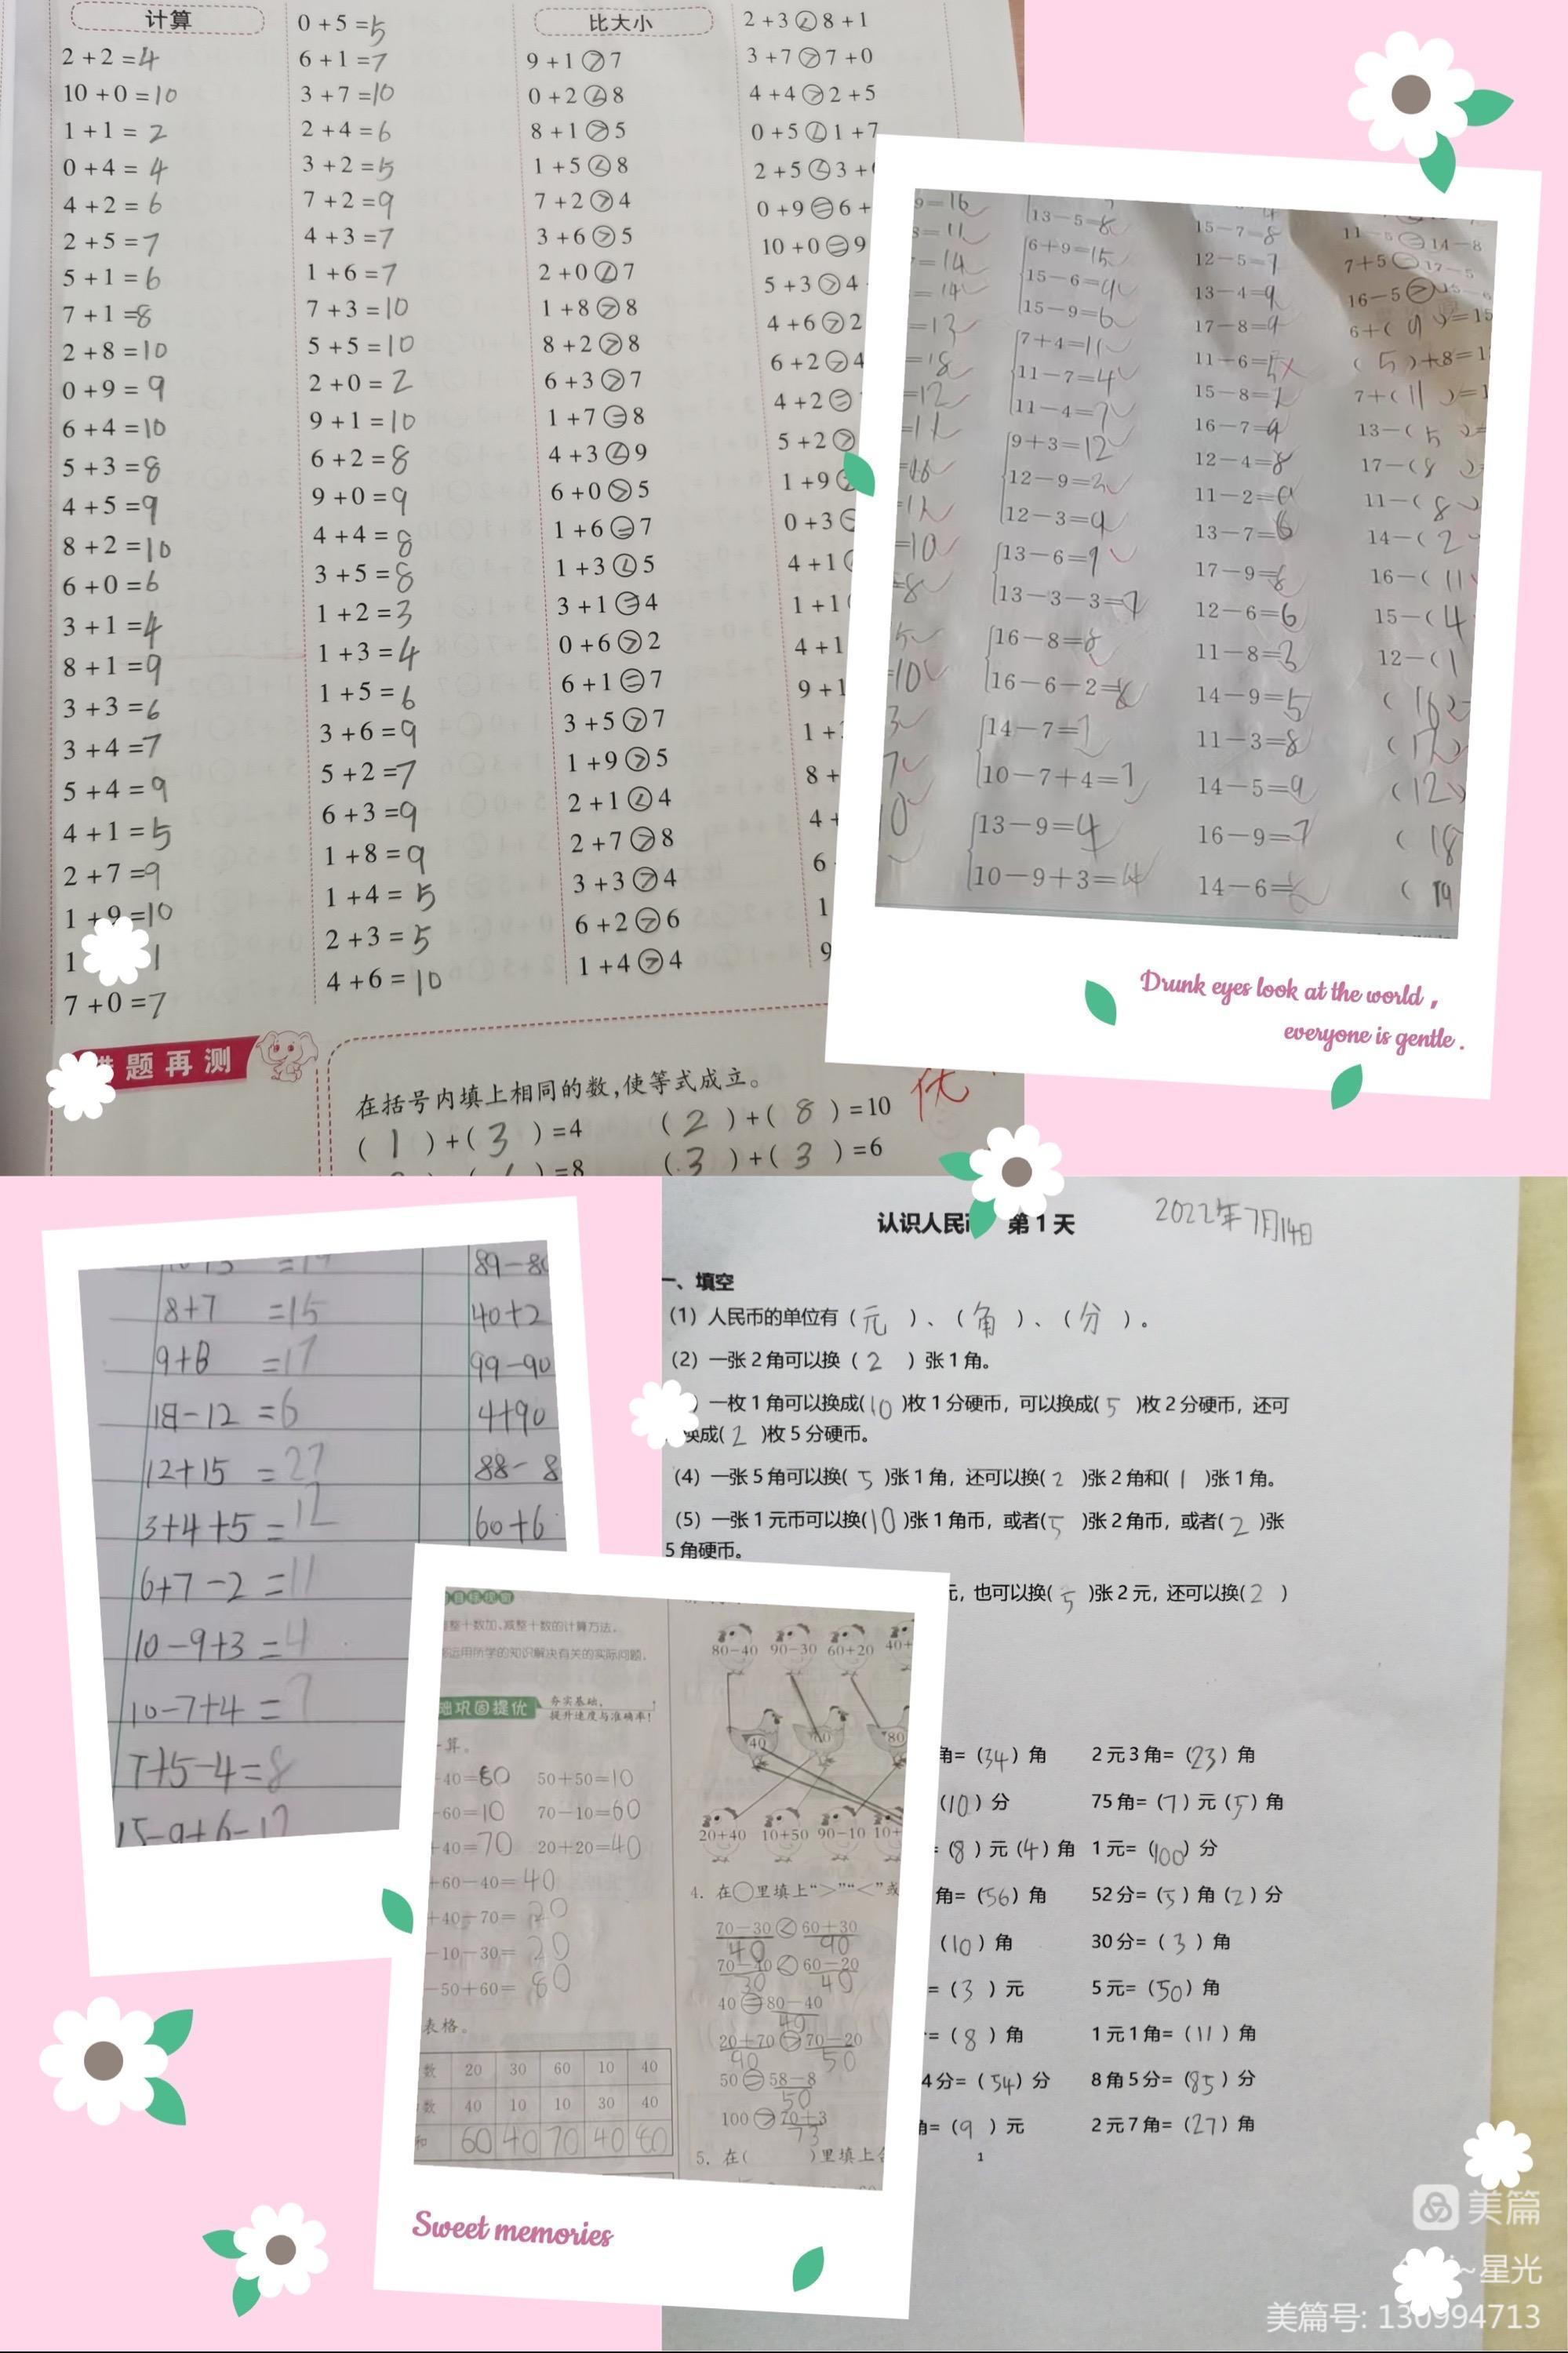 计算
2+2=4
10+0=10
1+1=2
0+4=4
4+2=6
2+5=7
5+1=6
7+1=8
2+8=10
0+9=9
6+4=10
5+3=8
4+5=9
8+2=10
6+0=6
3+1=4
8+1=9
3+3=6
3+4=7
5+4=9
4+1=5
2+7=9
1+9=10
7+0=7
0+5=5
6+1=7
3+7=10
2+4=6
3+2=5
7+2=9
4+3=7
1+6=7
7+3=10
5+5=10
2+0=2
9+1=10
6+2=8
9+0=9
4+4=8
3+5=8
1+2=3
1+3=4
1+5=6
3+6=9
5+2=7
6+3=9
1+8=9
1+4=5
2+3=5
4+6=10
比大小
9+1>7
0+2<8
8+1>5
1+5<8
7+2>4
3+6>5
2+0<7
1+8>8
8+2>8
6+3>7
1+7=8
4+3<9
6+0>5
1+6=7
1+3<5
3+1=4
0+6>2
6+1=7
3+5>7
1+9>5
2+1<4
2+7>8
3+3>4
6+2>6
1+4>4
2+3<8+1
3+7>7+0
4+4>2+5
0+5<1+7
2+5<3+
0+9=6+
10+0=9
5+3>4
4+6>2
6+2>4
4+2=
5+2>
1+9
0+3
4+1
1+1
4+1
9+1
1+
8+
4+
6
1
9
题再测
在括号内填上相同的数,使等式成立。
(1)+(3)=4 (2)+(8)=10
)=8 (3)+(3)=6
优
9=16
=11
=14
=14
=13
=18
=12
=11
=10
=8
13-5=8
6+9=15
15-6=9
15-9=6
7+4=11
11-7=4
11-4=7
9+3=12
12-9=3
12-3=9
13-6=7
13-3-3=7
16-8=8
16-6-2=8
14-7=7
10-7+4=7
13-9=4
10-9+3=4
15-7=8
12-5=7
13-4=9
17-8=9
11-6=5
15-8=7
16-7=9
12-4=8
11-2=9
13-7=6
17-9=8
12-6=6
11-8=3
14-9=5
11-3=8
14-5=9
16-9=7
14-6=8
11-5=14-8
7+5=17-5
16-5>
6+(9)=15
(5)+8=1
7+(11)=1
13-(5)=
17-(8)=
11-(8)
14-(2
16-(11
15-(4
12-(1
(16)
(12)
(12)
(18
(19
Drunk eyes look at the world,
everyone is gentle.
8+7=15
9+8=17
18-12=6
12+15=27
3+4+5=12
6+7-2=11
10-9+3=4
10-7+4=7
7+5-4=8
15-9+6=12
89-80
40+2
99-90
4+90
88-8
60+6
整十数加、减整十数的计算方法。
运用所学的知识解决有关的实际问题。
础巩固提优 夯实基础,
提升速度与准确率!
算。
40=80 50+50=10
-60=10 70-10=60
+40=70 20+20=40
+60-40=40
+40-70=20
-10-30=20
-50+60=80
表格。
数 20 30 60 10 40
数 40 10 10 30 40
和 60 40 70 40 80
80-40 90-30 60+20 40+
40 60 80
20+40 10+50 90-10 10+
4. 在○里填上“>”“<”或
70-30<60+30
40 90
70-40<60-20
30 40
40=80-40
40
20+70>70-20
90 50
50=58-8
50
100>70+3
73
5. 在( )里填上合
Sweet memories
认识人民币 第1天 2022年7月14日
一、填空
(1)人民币的单位有(元)、(角)、(分)。
(2)一张2角可以换(2)张1角。
)一枚1角可以换成(10)枚1分硬币,可以换成(5)枚2分硬币,还可
换成(2)枚5分硬币。
(4)一张5角可以换(5)张1角,还可以换(2)张2角和(1)张1角。
(5)一张1元币可以换(10)张1角币,或者(5)张2角币,或者(2)张
5角硬币。
元,也可以换(5)张2元,还可以换(2)
角=(34)角 2元3角=(23)角
(10)分 75角=(7)元(5)角
=(8)元(4)角 1元=(100)分
角=(56)角 52分=(5)角(2)分
(10)角 30分=(3)角
=(3)元 5元=(50)角
=(8)角 1元1角=(11)角
4分=(54)分 8角5分=(85)分
角=(9)元 2元7角=(27)角
1
美篇
~星光
美篇号: 130994713